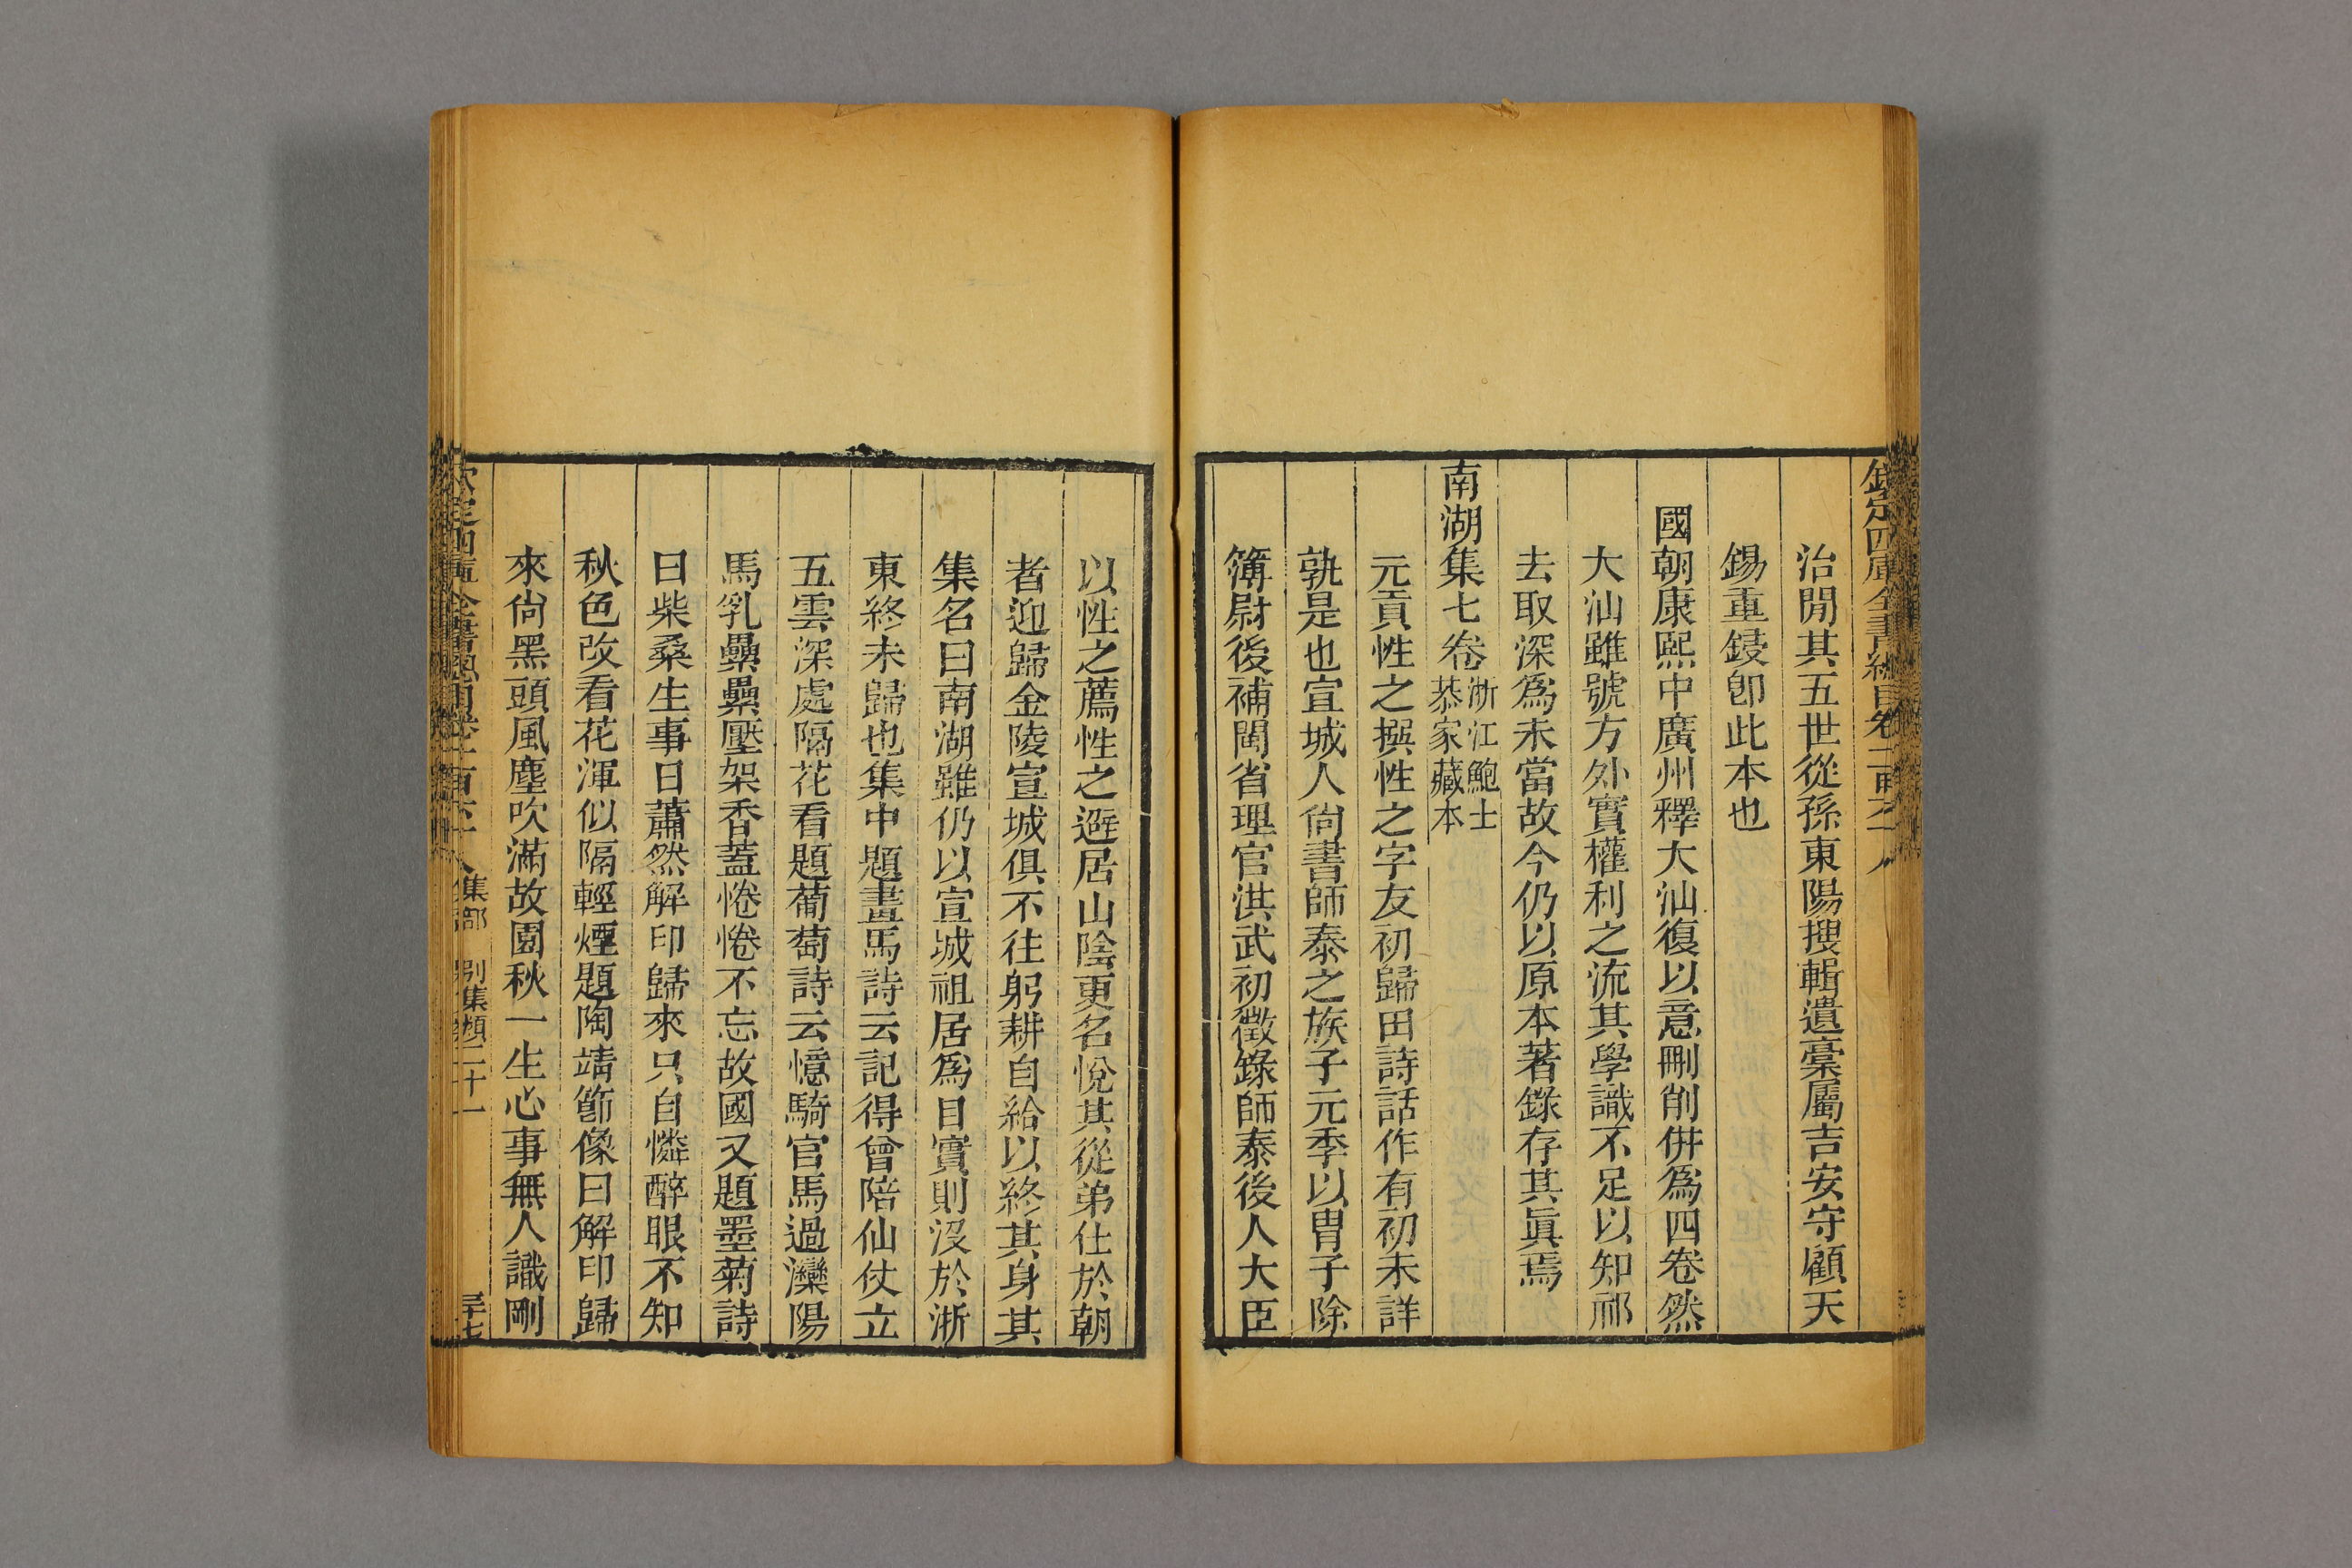 欽定四庫全書總目卷一百六十八
治閒其五世從孫東陽搜輯遺稾屬吉安守顧天
錫重鋟卽此本也
國朝康熙中廣州釋大汕復以意刪削倂爲四卷然
大汕雖號方外實權利之流其學識不足以知祁
去取深爲未當故今仍以原本著錄存其眞焉
南湖集七卷浙江鮑士恭家藏本
元貢性之撰性之字友初歸田詩話作有初未詳
孰是也宣城人尙書師泰之族子元季以胄子除
簿尉後補閩省理官洪武初徵錄師泰後人大臣
以性之薦性之避居山陰更名悅其從弟仕於朝
者迎歸金陵宣城俱不往躬耕自給以終其身其
集名曰南湖雖仍以宣城祖居爲目實則沒於浙
東終未歸也集中題畫馬詩云記得曾陪仙仗立
五雲深處隔花看題葡萄詩云憶騎官馬過灤陽
馬乳纍纍壓架香蓋惓惓不忘故國又題墨菊詩
曰柴桑生事日蕭然解印歸來只自憐醉眼不知
秋色改看花渾似隔輕煙題陶靖節像曰解印歸
來尙黑頭風塵吹滿故園秋一生心事無人識剛
欽定四庫全書總目卷一百六十八 集部 別集類二十一 三十七